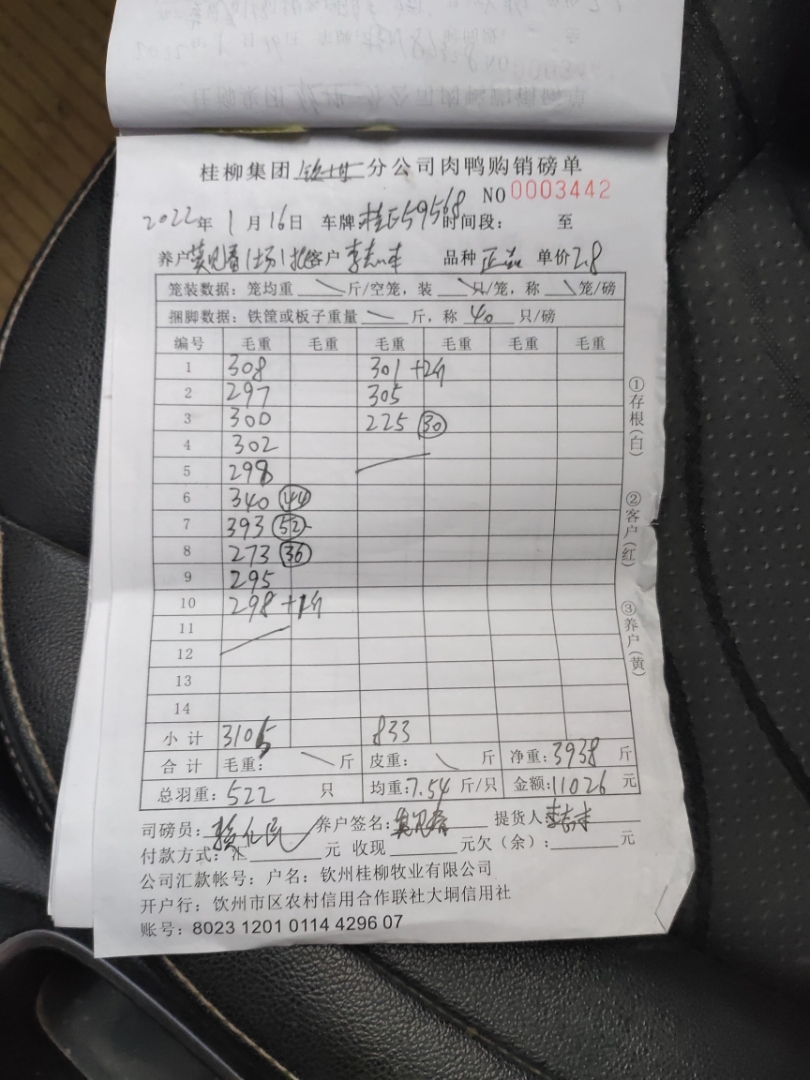 桂柳集团 钦州 分公司肉鸭购销磅单
NO 0003442
2022年 1月16日 车牌:桂E59568 时间段: 至
养户 客户 李志 品种 正品 单价 2.8
笼装数据: 笼均重 斤/空笼, 装 只/笼, 称 笼/磅
捆脚数据: 铁筐或板子重量 斤, 称 40 只/磅
编号 毛重 毛重 毛重 毛重 毛重 毛重
1 308 301 +2斤
2 297 305
3 300 225 30
4 302
5 298
6 340 44
7 393 52
8 273 36
9 295
10 298 +1斤
11
12
13
14
小计 3105 833
合计 毛重: 斤 皮重: 斤 净重: 3938 斤
总羽重: 522 只 均重: 7.54 斤/只 金额: 11026 元
司磅员: 养户签名: 提货人: 李志
付款方式: 汇 元 收现 元欠(余): 元
公司汇款帐号: 户名: 钦州桂柳牧业有限公司
开户行: 钦州市区农村信用合作联社大垌信用社
账号: 8023 1201 0114 4296 07
①存根(白)
②客户(红)
③养户(黄)